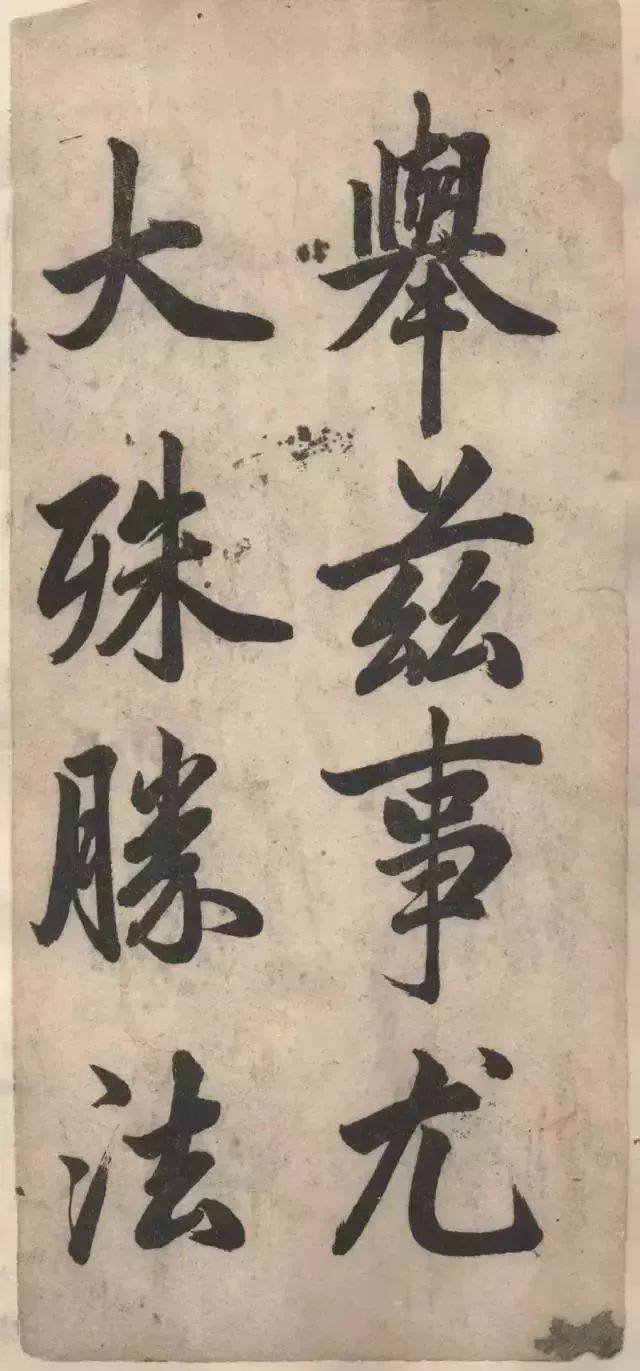 舉茲事尤
大殊勝法